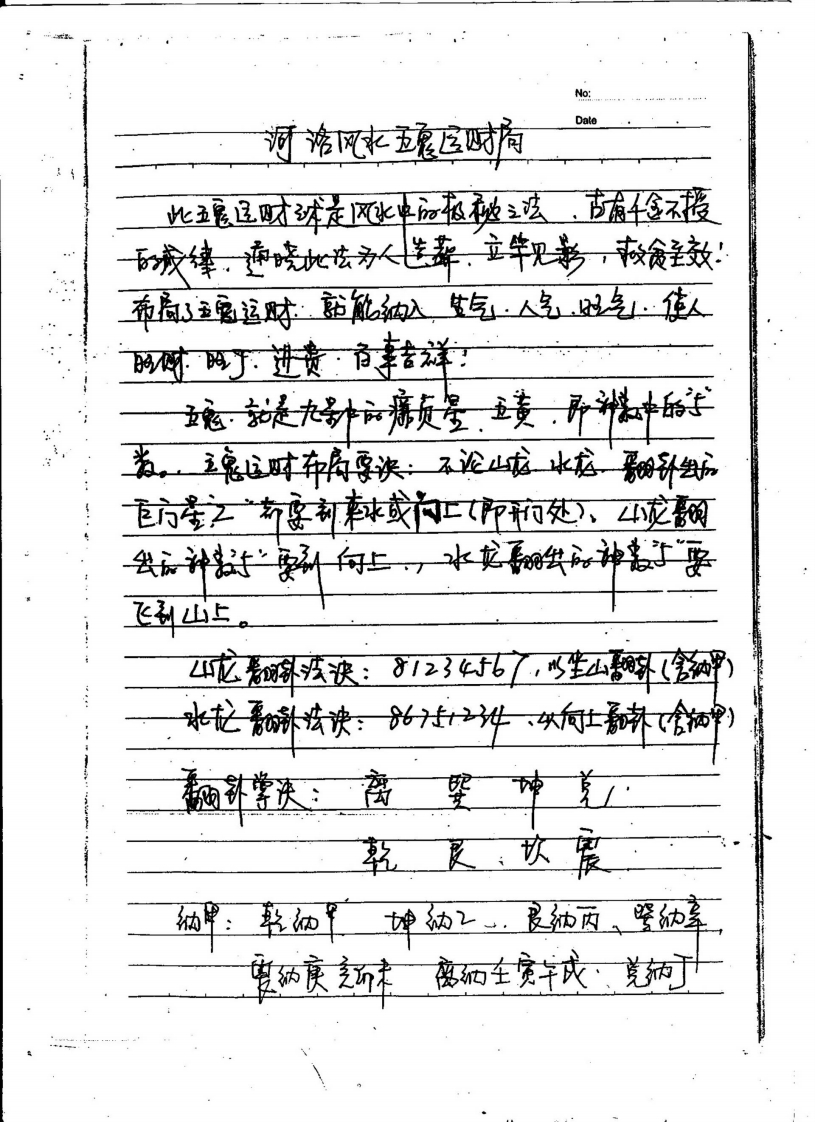 No:
Date
河洛风水五鬼运财局
此五鬼运财球是风水中的极秘之法，古有千金不授
的戒律，通晓此法为人造葬，立竿见影，救贫至效！
布局了五鬼运财，就能纳入生气、人气、旺气，使人
旺财、旺丁、进贵、百事吉祥！
五鬼，就是九星中的廉贞星，五黄，即神数中的“5”
数。五鬼运财布局要诀：不论山龙、水龙，翻卦出的
巨门星“2”都要到来水或向上（即开门处）、山龙翻
出的神数“5”要到向上，水龙翻出的神数“5”要
飞到山上。
山龙翻卦法诀：81234567，以坐山翻卦（含纳甲）
水龙翻卦法诀：86751234，以向上翻卦（含纳甲）
翻卦掌诀：离 巽 坤 兑
乾 艮 坎 震
纳甲：乾纳甲 坤纳乙 艮纳丙、巽纳辛，
震纳庚亥卯未 离纳壬寅午戌 兑纳丁